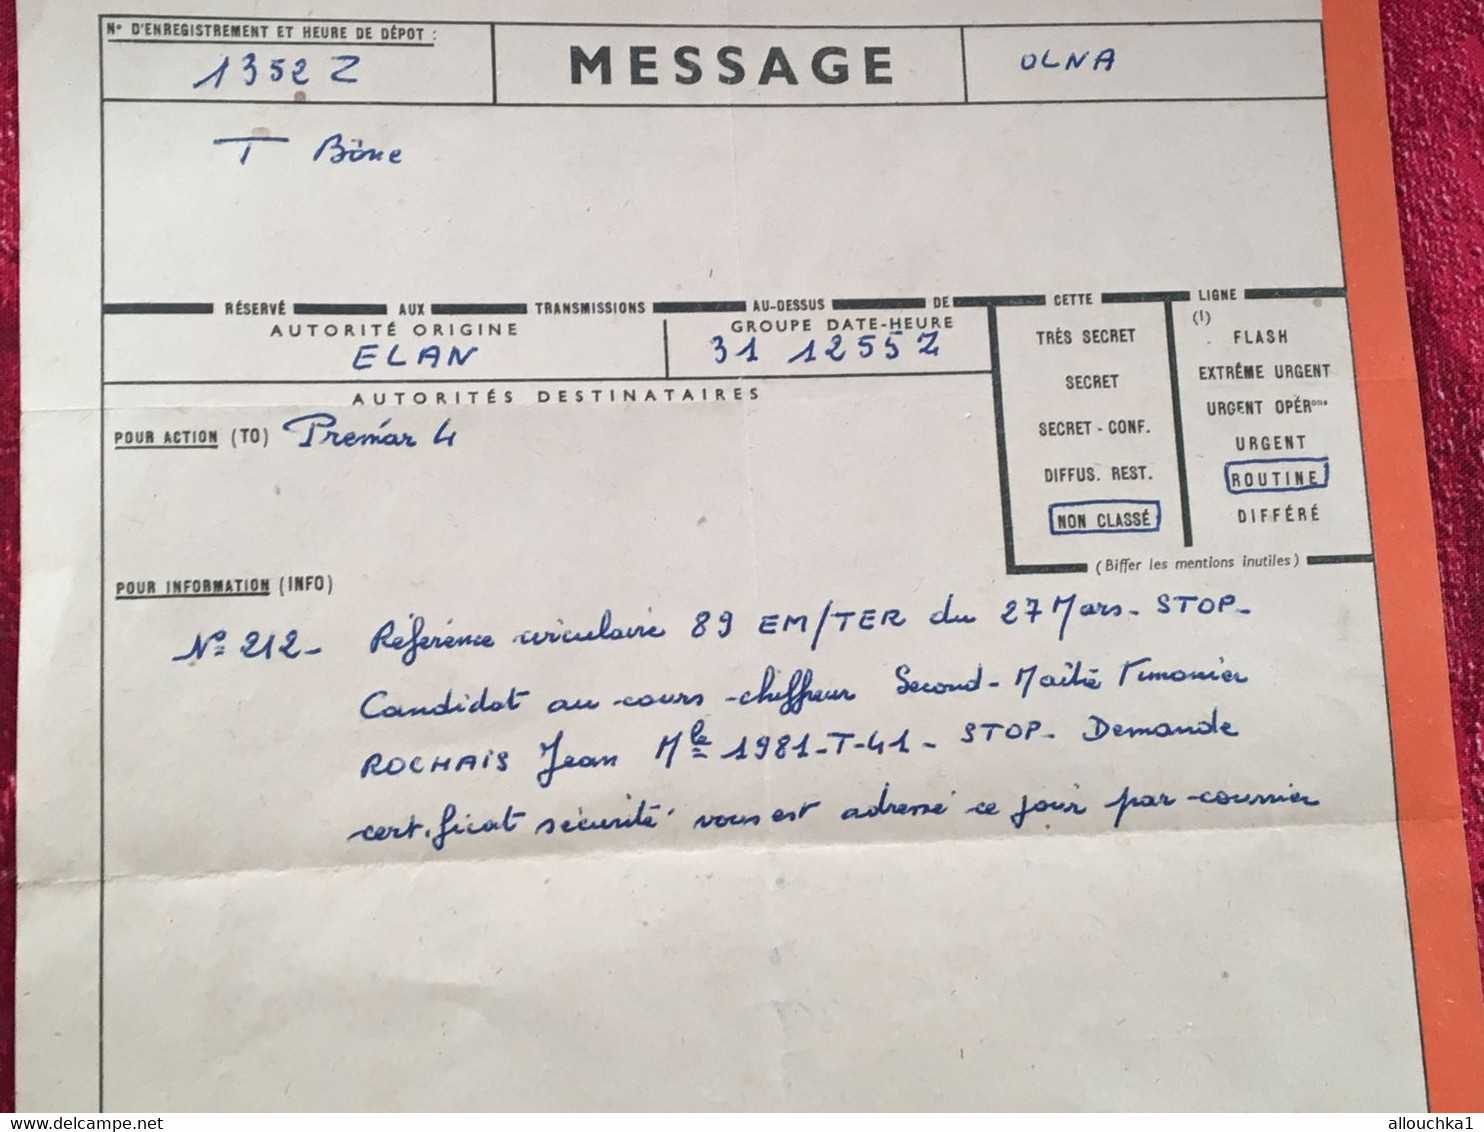 N° D'ENREGISTREMENT ET HEURE DE DÉPOT :
1352 Z
MESSAGE
OLNA
T Bône
RÉSERVÉ AUX TRANSMISSIONS AU-DESSUS DE CETTE LIGNE
AUTORITÉ ORIGINE
ELAN
GROUPE DATE-HEURE
31 1255 Z
AUTORITÉS DESTINATAIRES
POUR ACTION (TO) Premar 4
TRÈS SECRET
SECRET
SECRET - CONF.
DIFFUS. REST.
NON CLASSÉ
(1)
FLASH
EXTRÊME URGENT
URGENT OPÉRons
URGENT
ROUTINE
DIFFÉRÉ
(Biffer les mentions inutiles)
POUR INFORMATION (INFO)
N° 212 - Référence circulaire 89 EM/TER du 27 Mars - STOP -
Candidat au cours chiffreur Second-Maître Timonier
ROCHAIS Jean Mle 1981-T-41 - STOP - Demande
certificat sécurité vous est adressé ce jour par courrier
allouchka1